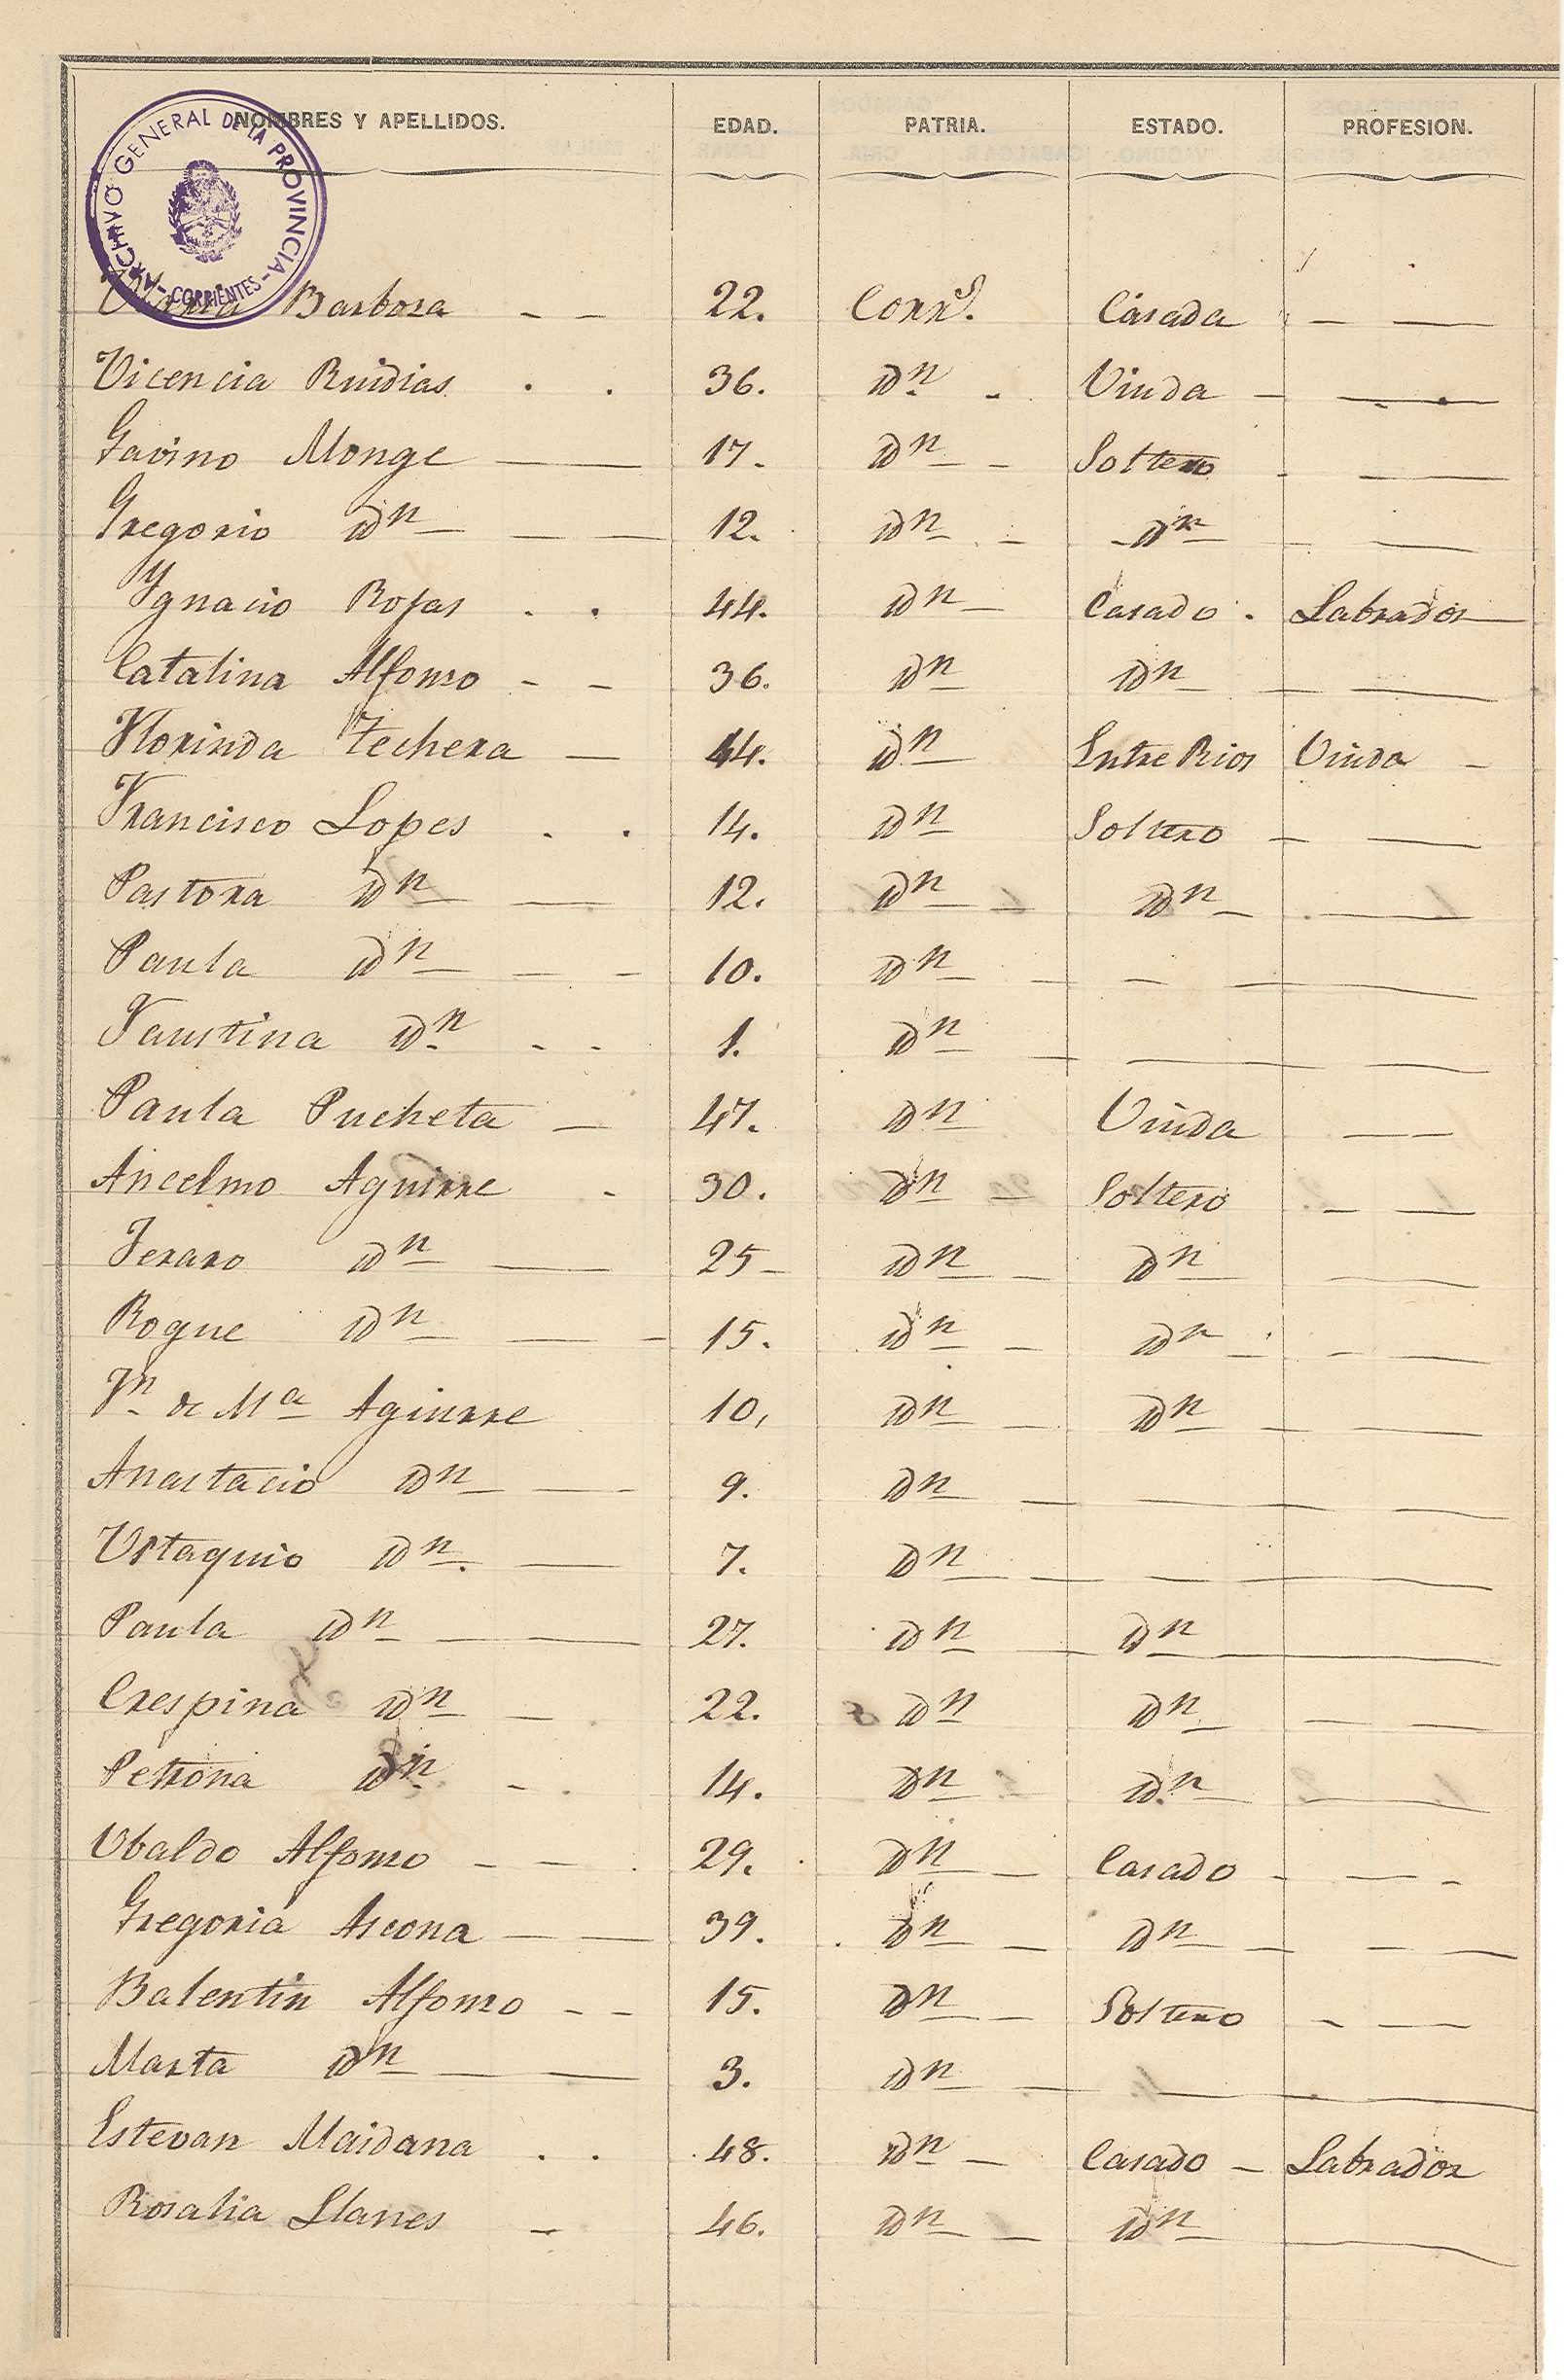 NOMBRES Y APELLIDOS. EDAD. PATRIA. ESTADO. PROFESION.
ARCHIVO GENERAL DE LA PROVINCIA - CORRIENTES -
Barbosa - - 22. Corrs. Casada - —
Vicencia Ruidias . . 36. Dn. - Viuda - —
Gavino Monge — 17. Dn - Soltero - —
Gregorio Dn — — 12. Dn - Dn - —
Ygnacio Rojas . . 44. Dn Casado . Labrador
Catalina Alfonso - - 36. Dn Dn — —
Florinda Techera — 44. Dn Entre Rios Viuda -
Francisco Lopes . . 14. Dn Soltero - —
Pastora Dn — 12. Dn - Dn - —
Paula Dn — - 10. Dn - - —
Faustina Dn. - - 1. Dn — — —
Paula Pucheta — 47. Dn Viuda —
Ancelmo Aguirre - 30. Dn - Soltero - —
Jeraro Dn — 25- Dn - Dn —
Roque Dn — - 15. Dn - Dn - - —
Jn. de Ma Aguirre 10, Dn - Dn - - —
Anastacio Dn — - 9. Dn — — —
Ustaquio Dn. — 7. Dn — - - —
Paula Dn — — 27. Dn — Dn —
Crespina Dn — 22. Dn Dn - — —
Petrona Dn - . 14. Dn Dn —
Ubaldo Alfonso - - . 29. Dn - Casado - — -
Gregoria Ascona — — 39. Dn - Dn - - —
Balentin Alfonso - - 15. Dn - Soltero - —
Marta Dn — — 3. Dn — —
Estevan Maidana . . 48. Dn - Casado - Labrador
Rosalia Llanes - 46. Dn - Dn —